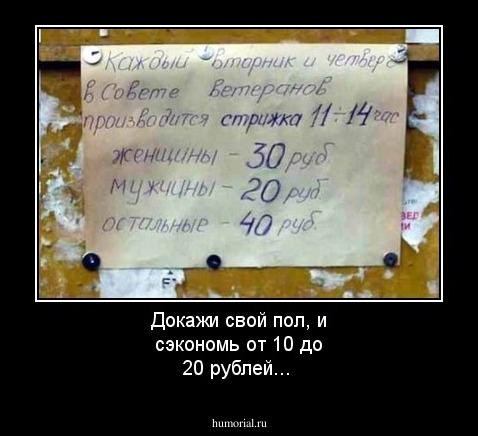 Каждый вторник и четверг
в Совете ветеранов
производится стрижка 11÷14 час
женщины - 30 руб.
мужчины - 20 руб.
остальные - 40 руб.
Докажи свой пол, и
сэкономь от 10 до
20 рублей...
humorial.ru